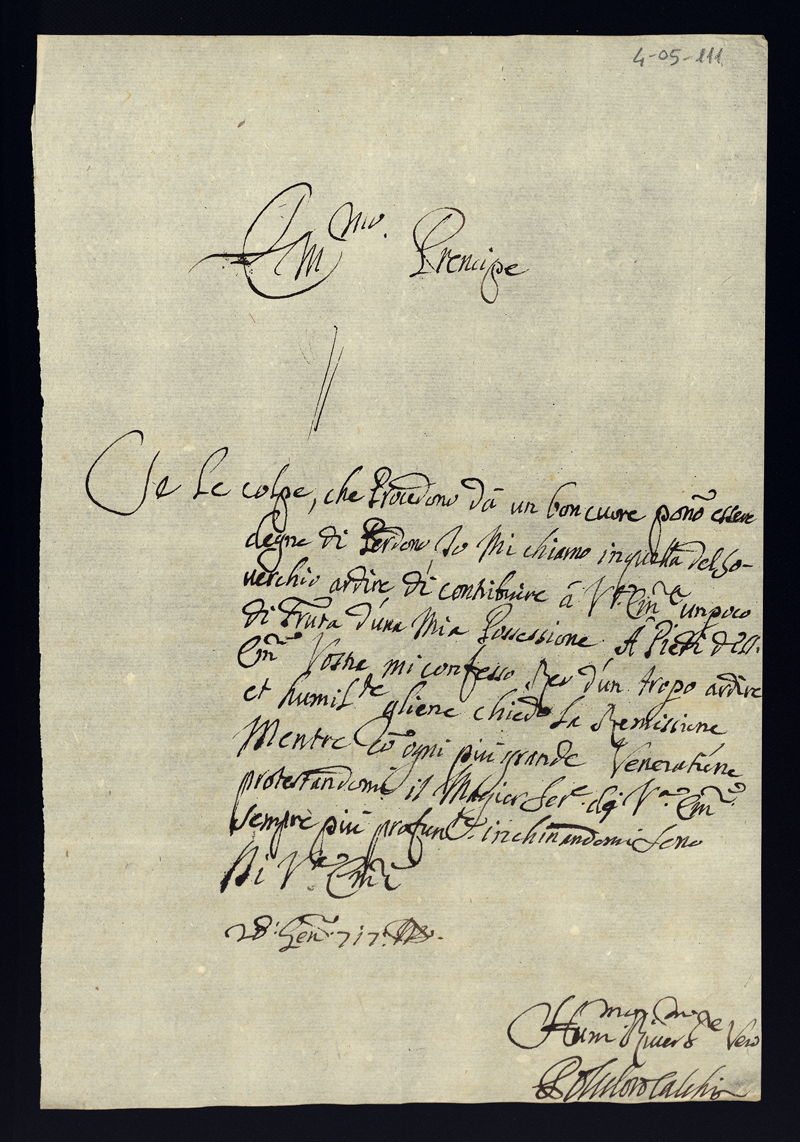 4-05-111
Em.mo Prencipe
Se Le colpe, che Procedono dà un bon cuore ponō essere
degne di Perdono, Io Mi chiamo in quella del So-
verchio ardire di contribuire à V.a Em.a un poco
di Fruta d'una Mia Possessione. A Piedi dell.
Em.a Vostra mi confesso Reo d'un tropo ardire
et humil.te gliene chiedo La Remissione
Mentre cō ogni più grande Veneratione
protestandomi il Magior Ser.e di V.a Em.a
sempre più profun.te inchinandomi Sono
Di V.a Em.a
28: Gen.o 717:
Hum.mo River.mo Vero